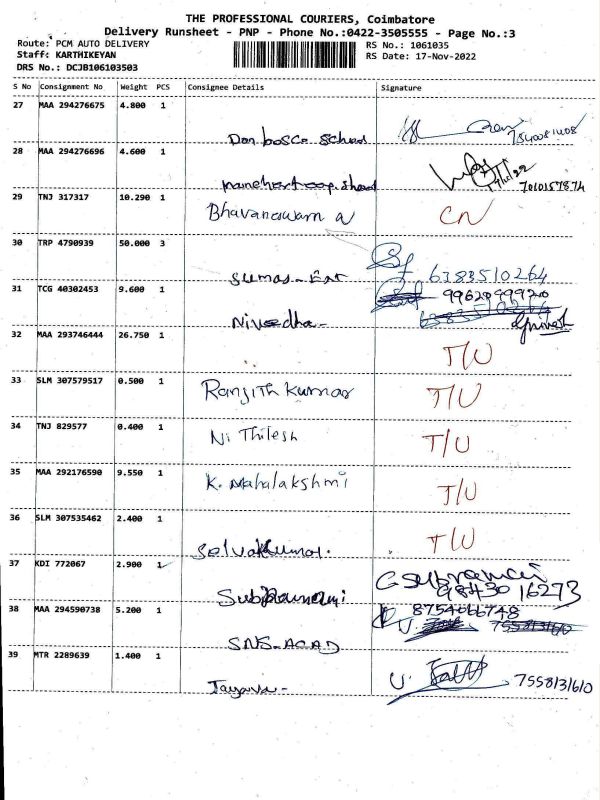 THE PROFESSIONAL COURIERS, Coimbatore
Delivery Runsheet - PNP - Phone No.:0422-3505555 - Page No.:3
Route: PCM AUTO DELIVERY
RS No.: 1061035
Staff: KARTHIKEYAN
RS Date: 17-Nov-2022
DRS No.: DCJB106103503
S No Consignment No Weight PCS Consignee Details Signature
27 MAA 294276675 4.800 1
Don bosco School
28 MAA 294276696 4.600 1
7010157874
29 TNJ 317317 10.290 1
CN
30 TRP 4790939 50.000 3
Sumas-Ent 6383510264
31 TCG 40302453 9.600 1
Nivedha-
32 MAA 293746444 26.750 1
T/U
33 SLM 307579517 0.500 1
Ranjith Kumar T/U
34 TNJ 829577 0.400 1
Ni Thilesh T/U
35 MAA 292176590 9.550 1
K. Mahalakshmi T/U
36 SLM 307535462 2.400 1
Selvakumar. T/U
37 KDI 772067 2.900 1
98430 16273
38 MAA 294590738 5.200 1
8754066748
SNS-ACAD
39 MTR 2289639 1.400 1
Jayava- 7558131610